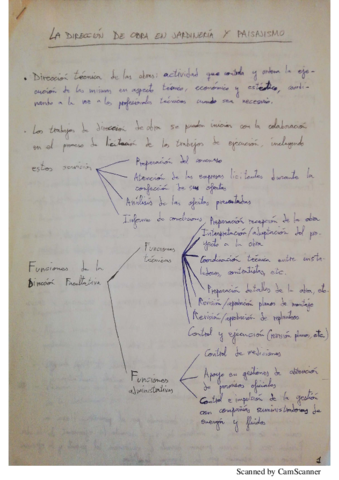 LA DIRECCIÓN DE OBRA EN JARDINERÍA Y PAISAJISMO
• Dirección técnica de las obras: actividad que controla y ordena la eje-
cución de las mismas en aspecto técnico, económico y estético,
a los profesionales técnicos cuando sea necesario.
• Los trabajos de dirección de obra se pueden iniciar con la colaboración
en el proceso de licitación de los trabajos de ejecución, incluyendo
estos servicios
Preparación del concurso
Atención de las empresas licitantes durante la
confección de sus ofertas
Análisis de las ofertas presentadas
Informe de conclusiones
FUNCIONES DE LA
DIRECCIÓN FACULTATIVA
Funciones
técnicas
Preparación recepción de la obra
Interpretación/adaptación del pro-
yecto a la obra
Coordinación técnica entre
contratistas, etc.
Preparación detalles de la obra, etc.
Revisión/aprobación planos de montaje
Revisión/aprobación de replanteos
Control y ejecución (revisión planos, etc.)
Funciones
administrativas
Control de mediciones
Apoyo en gestiones de obtención
de permisos oficiales
Control e impulsión de la gestión
con compañías suministradoras de
energía y fluidos
1
Scanned by CamScanner